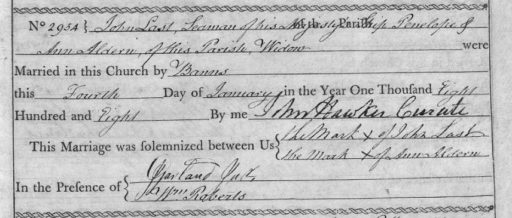 No 2934 { John Last, Seaman of his Majesty's Ship Penelope &
Ann Aldern, of this Parish, Widow were
Married in this Church by Banns
this Fourth Day of January in the Year One Thousand Eight
Hundred and Eight By me John Hawker Curate
This Marriage was solemnized between Us { the Mark x of John Last
the Mark x of Ann Aldern
In the Presence of {
Wm Roberts